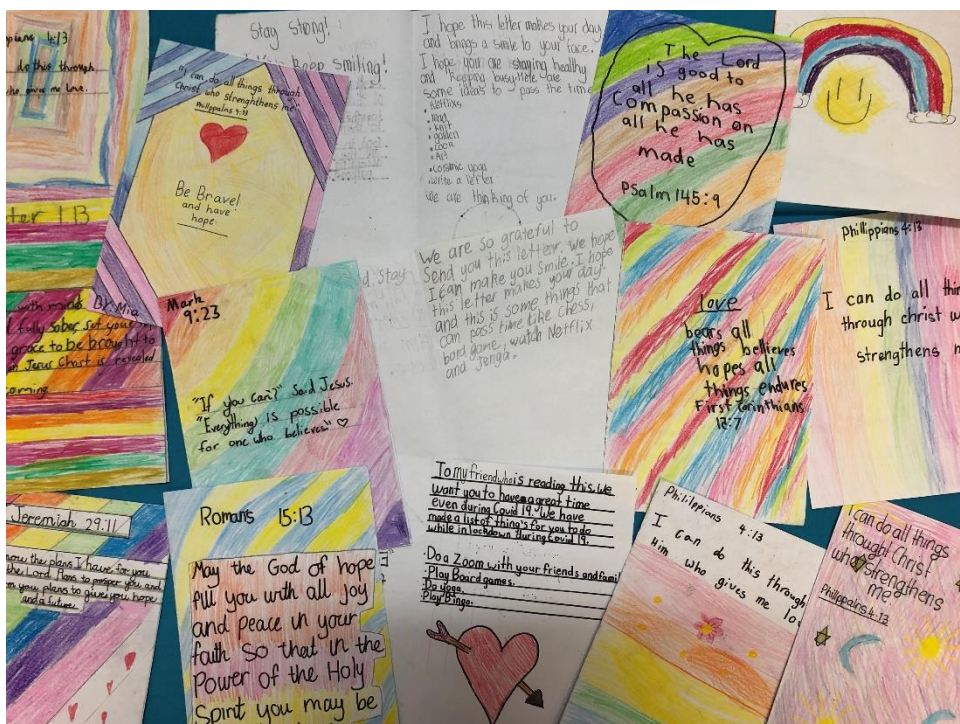 4:13
do this through
who gives me love.
"I can do all things through
Christ who strenghthens me"
Philippains 4:13
Be Brave!
and have
hope
Stay strong!
keep smiling!
I hope this letter makes your day
and brings a smile to your face.
I hope you are staying healthy
and keeping busy. Here are
some ideas to pass the time
• Netflixs
• read
• Knit
• garden
• Zoom
• Art
• cosmic yoga
• write a letter
we are thinking of you.
The Lord
is good to
all he has
Compassion on
all he has
made
Psalm 145:9
1:13
with minds By: Mia
fully sober, set your
grace to be brought to
Jesus Christ is revealed
coming
Mark
9:23
"If you can?" Said Jesus.
"Everything is possible
for one who believes"
stay
We are so grateful to
Send you this letter, we hope
I can make you smile. I hope
this letter makes your day.
and this is some things that
can pass time like Chess,
bord game, watch Netflix
and Jenga.
love
bears all
things believes
hopes all
things endures
First Corinthians
13:7
Phillippians 4:13
I can do all thin
through christ w
strengthens m
Jeremiah 29:11
now the plans I have for you
the Lord. Plans to prosper you and
m you plans to give you hope
and a future
Romans 15:13
May the God of hope
fill you with all joy
and peace in your
faith So that in the
Power of the Holy
Spirit you may be
To my friend who is reading this. We
want you to have a great time
even during Covid 19. We have
made a list of thing's for you to do
while in lockdown during Covid 19.
Do a Zoom with your friends and fami
Play Board games.
Do yoga.
Play Bingo.
Philippians 4:13
I can do this through
Him who gives me lo
I can do all things
through Christ
who strengthens
me
Philippains 4:13